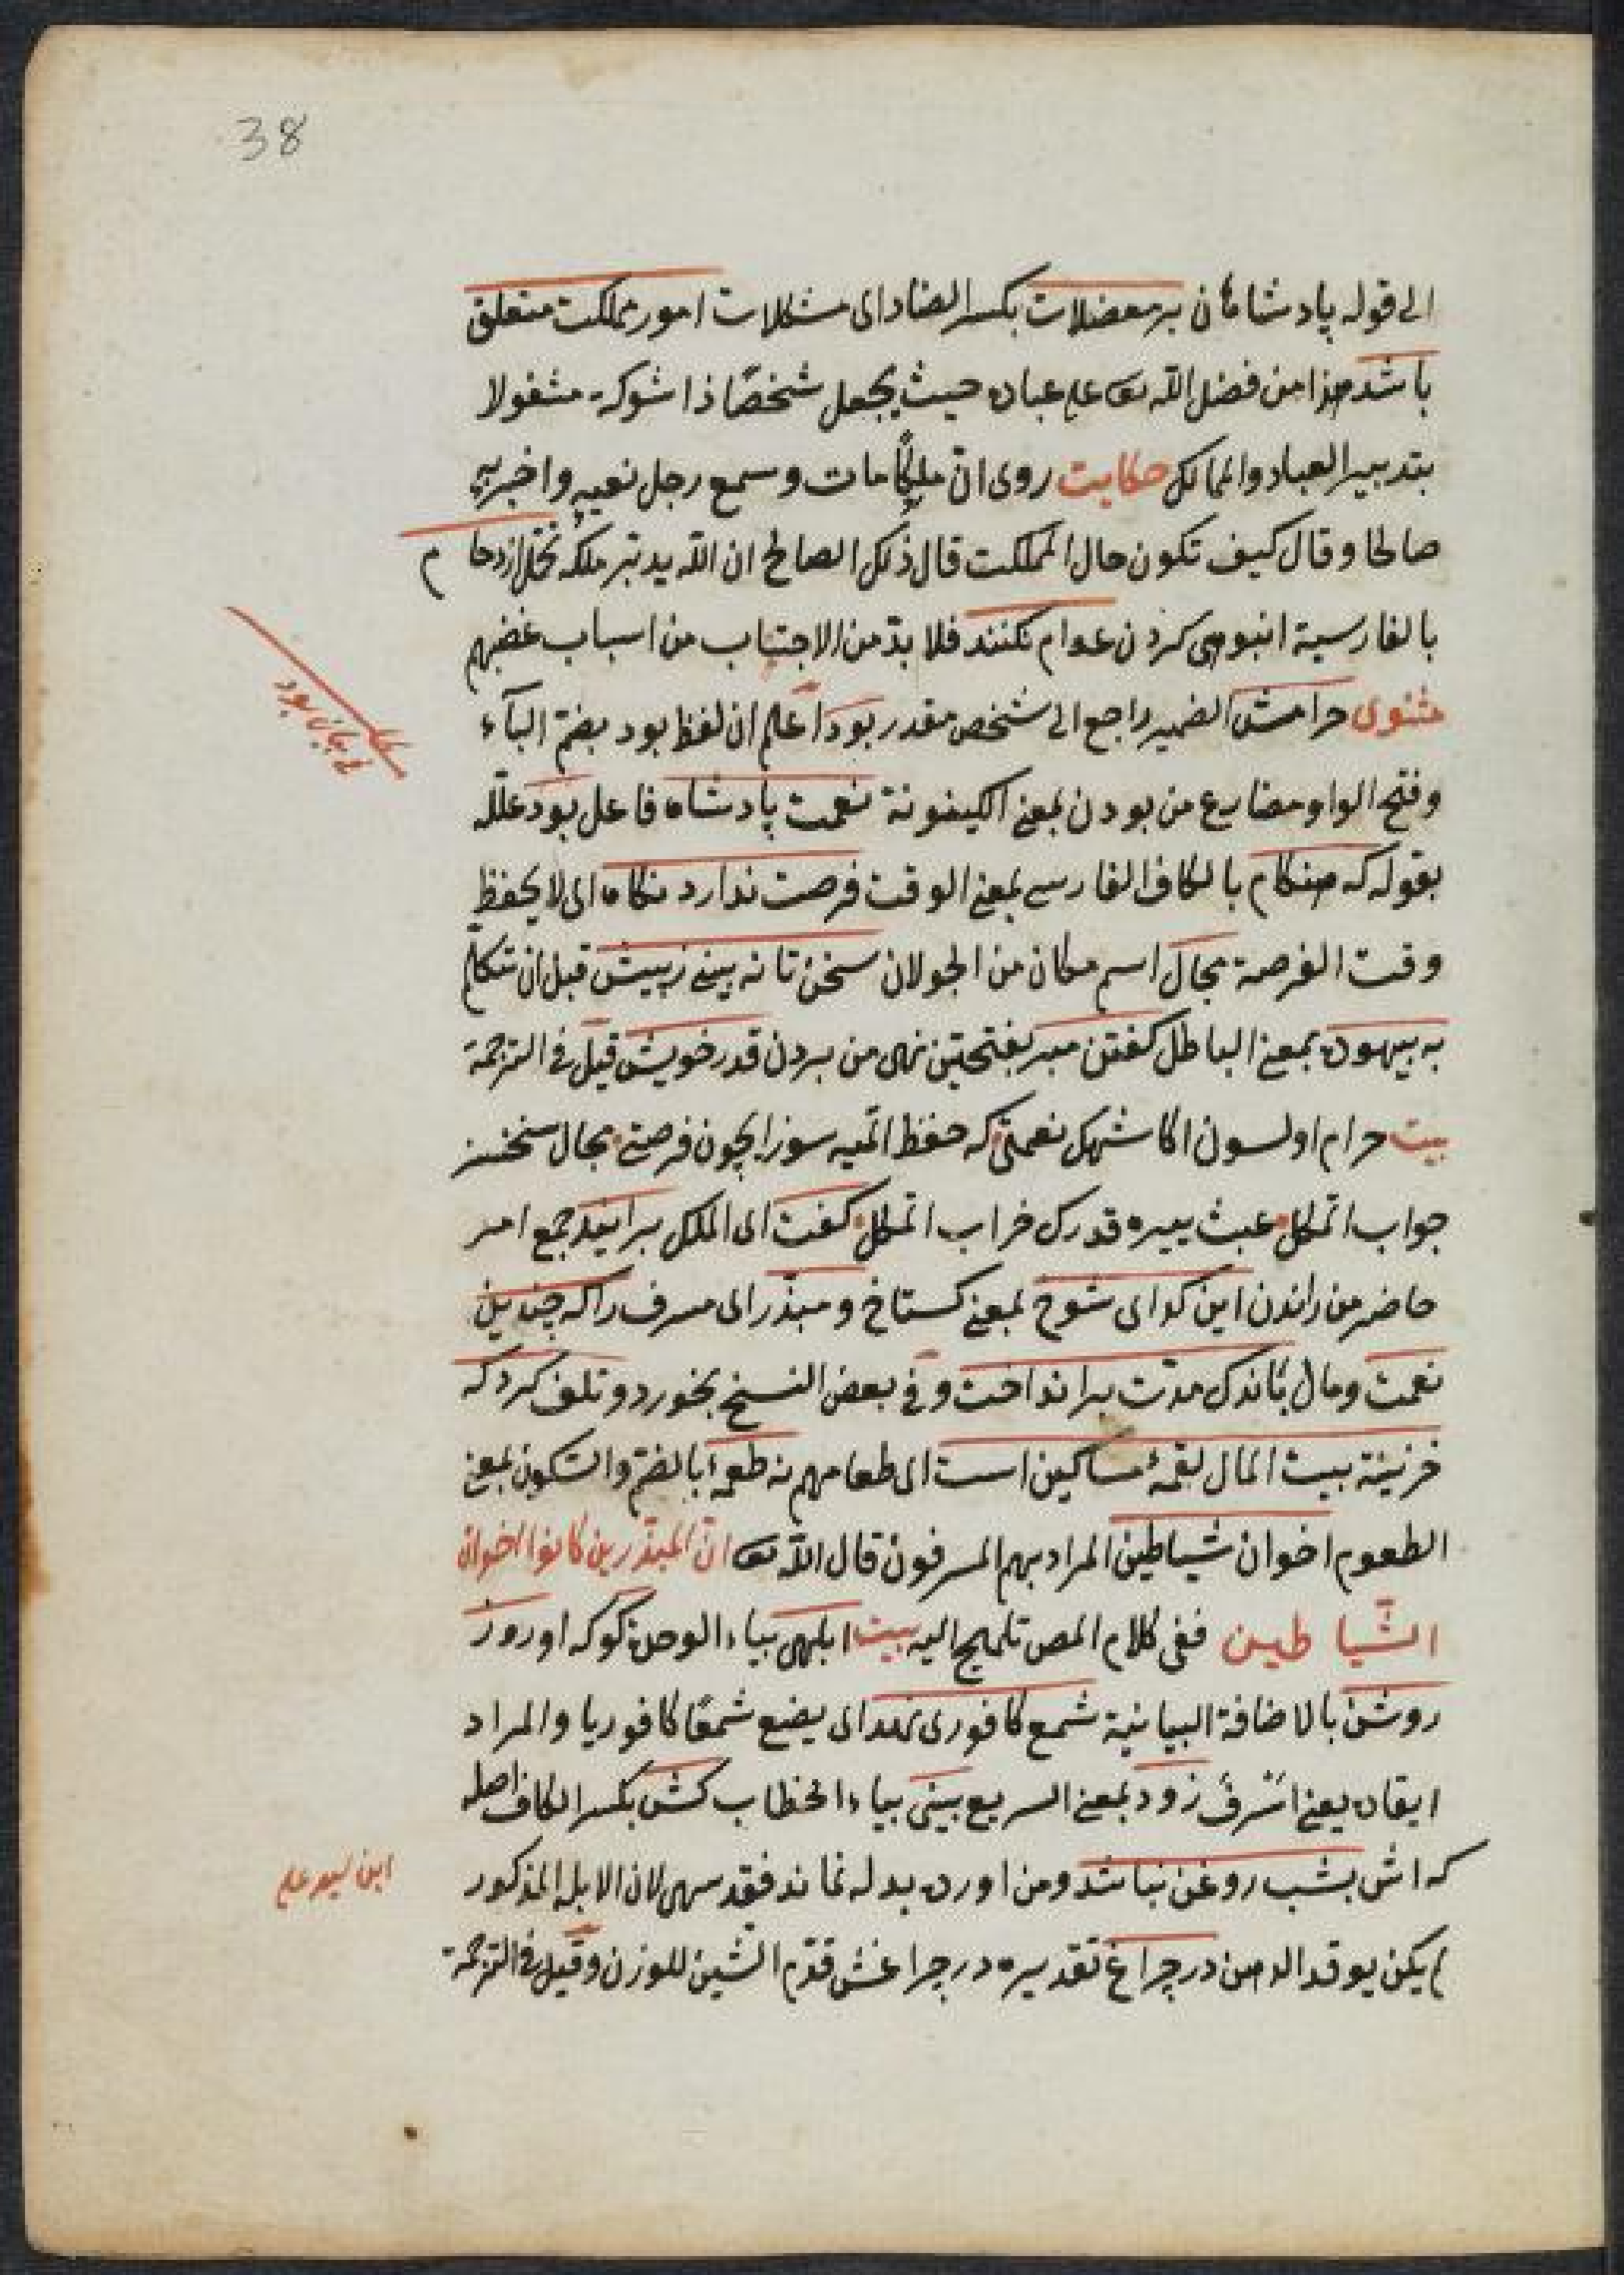 38
الى قوله پادشاهان بر معضلات بكسر الضاد اى مشكلات امور مملكت متعلق
باشد هذا من فضل الله تع على عباده حيث يجعل شخصًا ذا شوكة مشغولا
بتدبير العباد والممالك حكايت روى انّ ملكًا مات وسمع رجل نعيه واخبر به
صالحا وقال كيف تكون حال المملكت قال ذلك الصالح ان الله يدبّر ملكه تحمّل ازدحام
بالفارسية انبوهى كردن عوام نكنند فلا بدّ من الاجتناب من اسباب غضبهم
مثنوى حرامش الضمير راجع الى شخص مقدر بود اعلم ان لفظ بود بضمّ البآء
وفتح الواو مضارع من بودن بمعنى الكينونة نعمت پادشاه فاعل بود علّله
بقوله كه هنكام بالكاف الفارسى بمعنى الوقت فرصت ندارد نكاه اى لا يحفظ
وقت الفرصة مجال اسم مكان من الجولان سخن تا نه بينى زپيش قبل ان تتكلّم
به بيهوده بمعنى الباطل كفتن مبر بفتحتين نهى من بردن قدر خويش قيل فى الترجمة
بيت حرام اولسون اكا شهك نعمتى كه حفظ اتميه سوز ايچون فرصتى مجال سخنسز
جواب اتمكل عبث ييره قدرك خراب اتمكل كفت اى الملك برانيد جمع امر
حاضر من راندن اين كداى شوخ بمعنى كستاخ و مبذّر اى مسرف را كه چندين
نعمت ومال باندك مدّت برانداخت وفى بعض النسخ بخورد وتلف كرد كه
خزينهٔ بيت المال لقمهٔ مساكين است اى طعامهم نه طعمهٔ بالضمّ والسّكون بمعنى
الطعوم اخوان شياطين المراد بهم المسرفون قال الله تع انّ المبذّرين كانوا اخوان
الشّياطين ففى كلام المص تلميح اليه بيت ابلهى بياء الوحدة كو كه او روز
روشن بالاضافة البيانية شمع كافورى نهد اى يضع شمعًا كافوريا والمراد
ايقاده يعنى اسرف زود بمعنى السريع بينى بياء الخطاب كش بكسر الكاف اصله
كه اش بشب روغن نباشد ومن اورد بدله نماند فقد سهى لان الابله المذكور
لم يكن يوقد الدهن در چراغ تقديره در چراغش قدّم الشين للوزن وقيل فى الترجمة
بيان بود